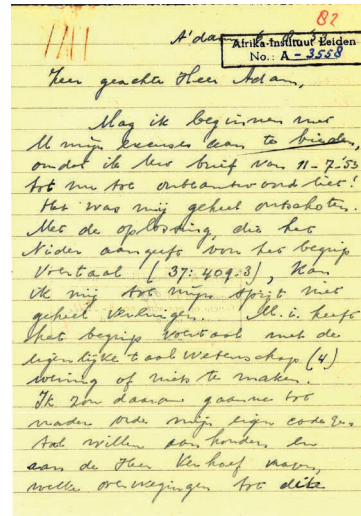 82
A'dam
Afrika-Instituut Leiden
No.: A - 3558
Zeer geachte Heer Adam,
Mag ik beginnen met
U mijn excuses aan te bieden,
omdat ik Uw brief van 11-7-'53
tot nu toe onbeantwoord liet!
Het was mij geheel ontschoten.
Met de oplossing, die het
Nider aangeeft voor het begrip
Voertaal (37: 409.3), kan
ik mij tot mijn spijt niet
geheel verenigen. M.i. heeft
het begrip voertaal met de
eigenlijke taalwetenschap (4)
weinig of niets te maken.
Ik zou daarom gaarne tot
nader order mijn eigen code
willen aanhouden en
aan de Heer Verhoef vragen,
welke overwegingen tot deze